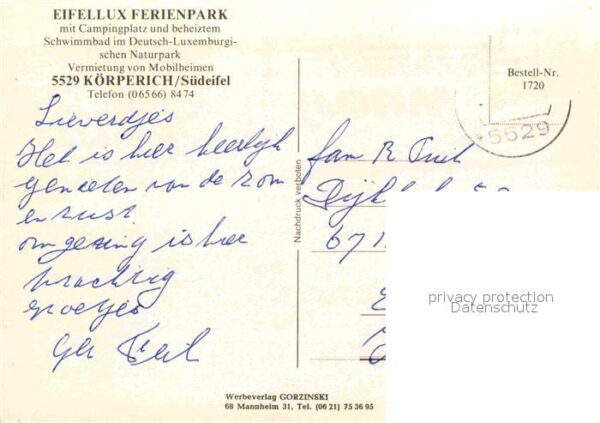 EIFELLUX FERIENPARK
mit Campingplatz und beheiztem
Schwimmbad im Deutsch-Luxemburgi-
schen Naturpark
Vermietung von Mobilheimen
5529 KÖRPERICH/Südeifel
Telefon (06566) 8474
Bestell-Nr.
1720
5529
Lieverdjes
Het is hier heerlijk
genieten van de zon
en rust.
omgeving is hier
prachtig
groetjes
Nachdruck verboten
fam R
671
privacy protection
Datenschutz
Werbeverlag GORZINSKI
68 Mannheim 31, Tel. (06 21) 75 36 95